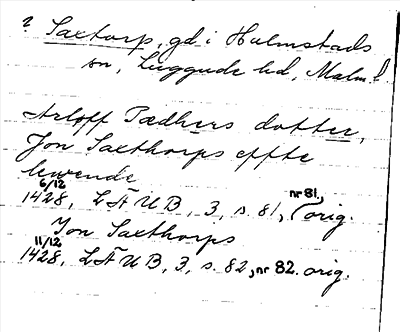 ? Saxtorp, gd i Halmstads
sn, Luggude hd, Malm. l.
Arloff Pædhers dotter,
Jon Saxthorps effte
lewende
6/12 1428, LÄUB, 3, s. 81, nr 81, orig.
Jon Saxthorps
11/12 1428, LÄUB, 3, s. 82, nr 82. orig.